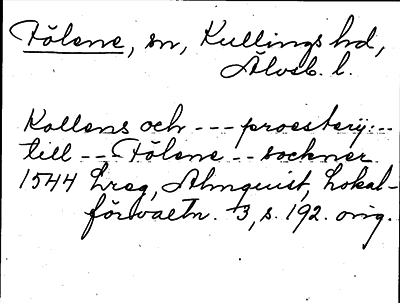 Fölene, sn, Kullings hd,
Älvsb. l.
Kollens och --- proestery ---
till -- Fölene -- sockner
1544 Lreg, Almquist, Lokal-
förvaltn. 3, s. 192. orig.